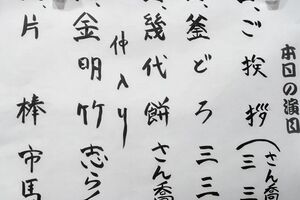 本日の演図
、ご挨拶(さん喬
、釜どろ 三三
、幾代餅 さん喬
仲入り
、金明竹 志ら
、片棒 市馬